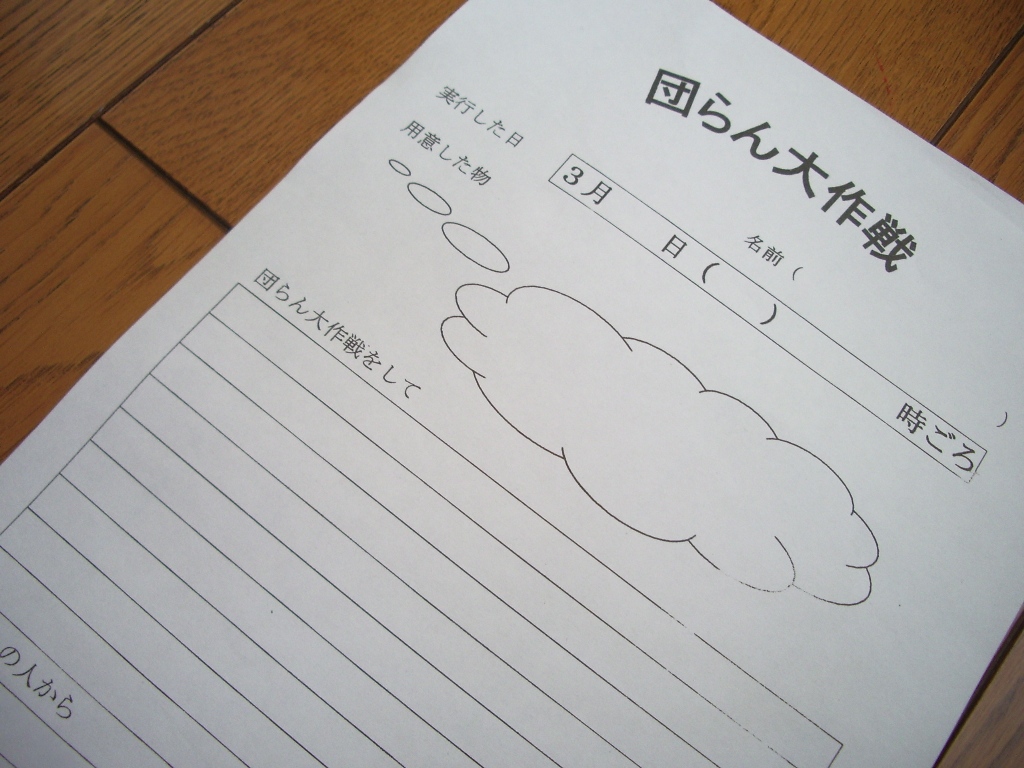 団らん大作戦
名前（　　　　　）
実行した日
3月　　日（　　）　　　時ごろ
用意した物
団らん大作戦をして
の人から